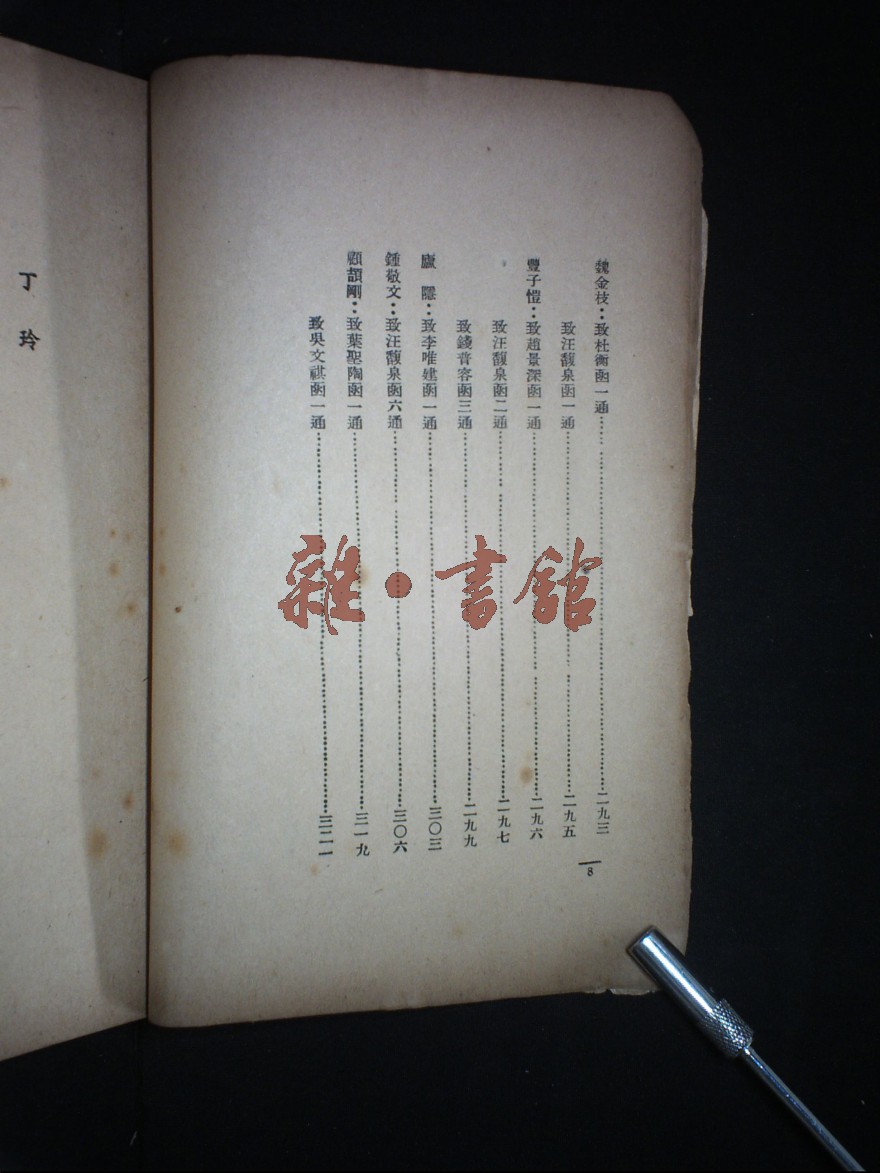 魏金枝：致杜衡函一通……二九三
致汪馥泉函一通……二九五
豐子愷：致趙景深函一通……二九六
致汪馥泉函二通……二九七
致錢普容函三通……二九九
廬隱：致李唯建函一通……三〇三
鍾敬文：致汪馥泉函六通……三〇六
顧頡剛：致葉聖陶函一通……三一九
致吳文祺函一通……三二一
8
丁玲
雜·書館